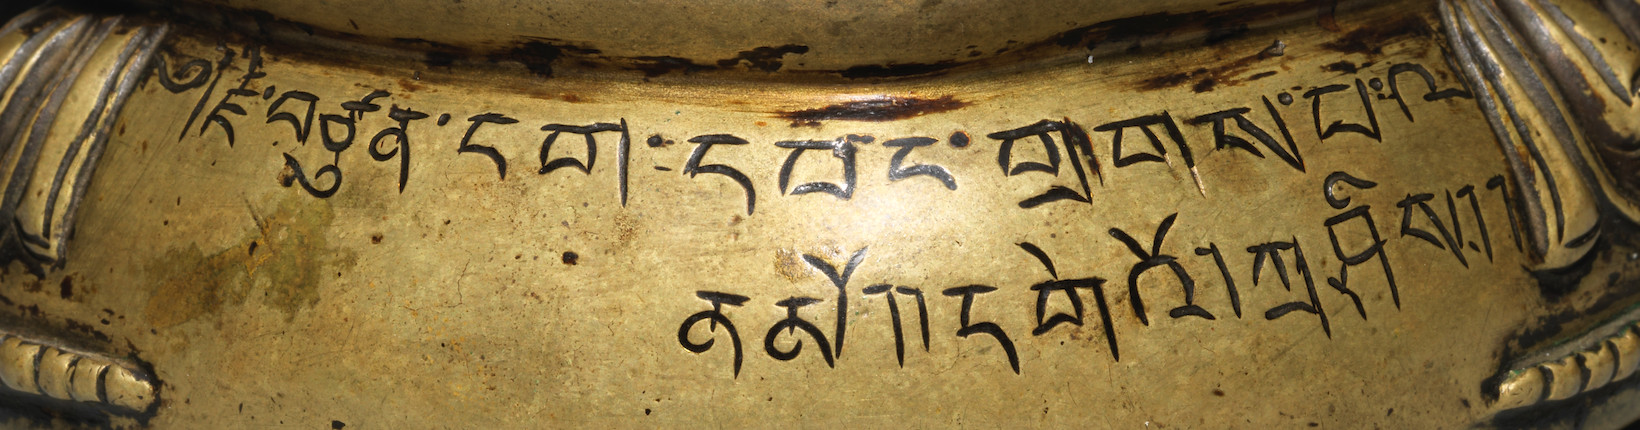 ༄། རྗེ་བཙུན་ངག་དབང་གྲགས་པ་ལ
ན་མོ།།དགེའོ།ཀྲཤིས།།